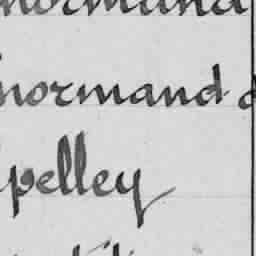 normand
normand
pelley